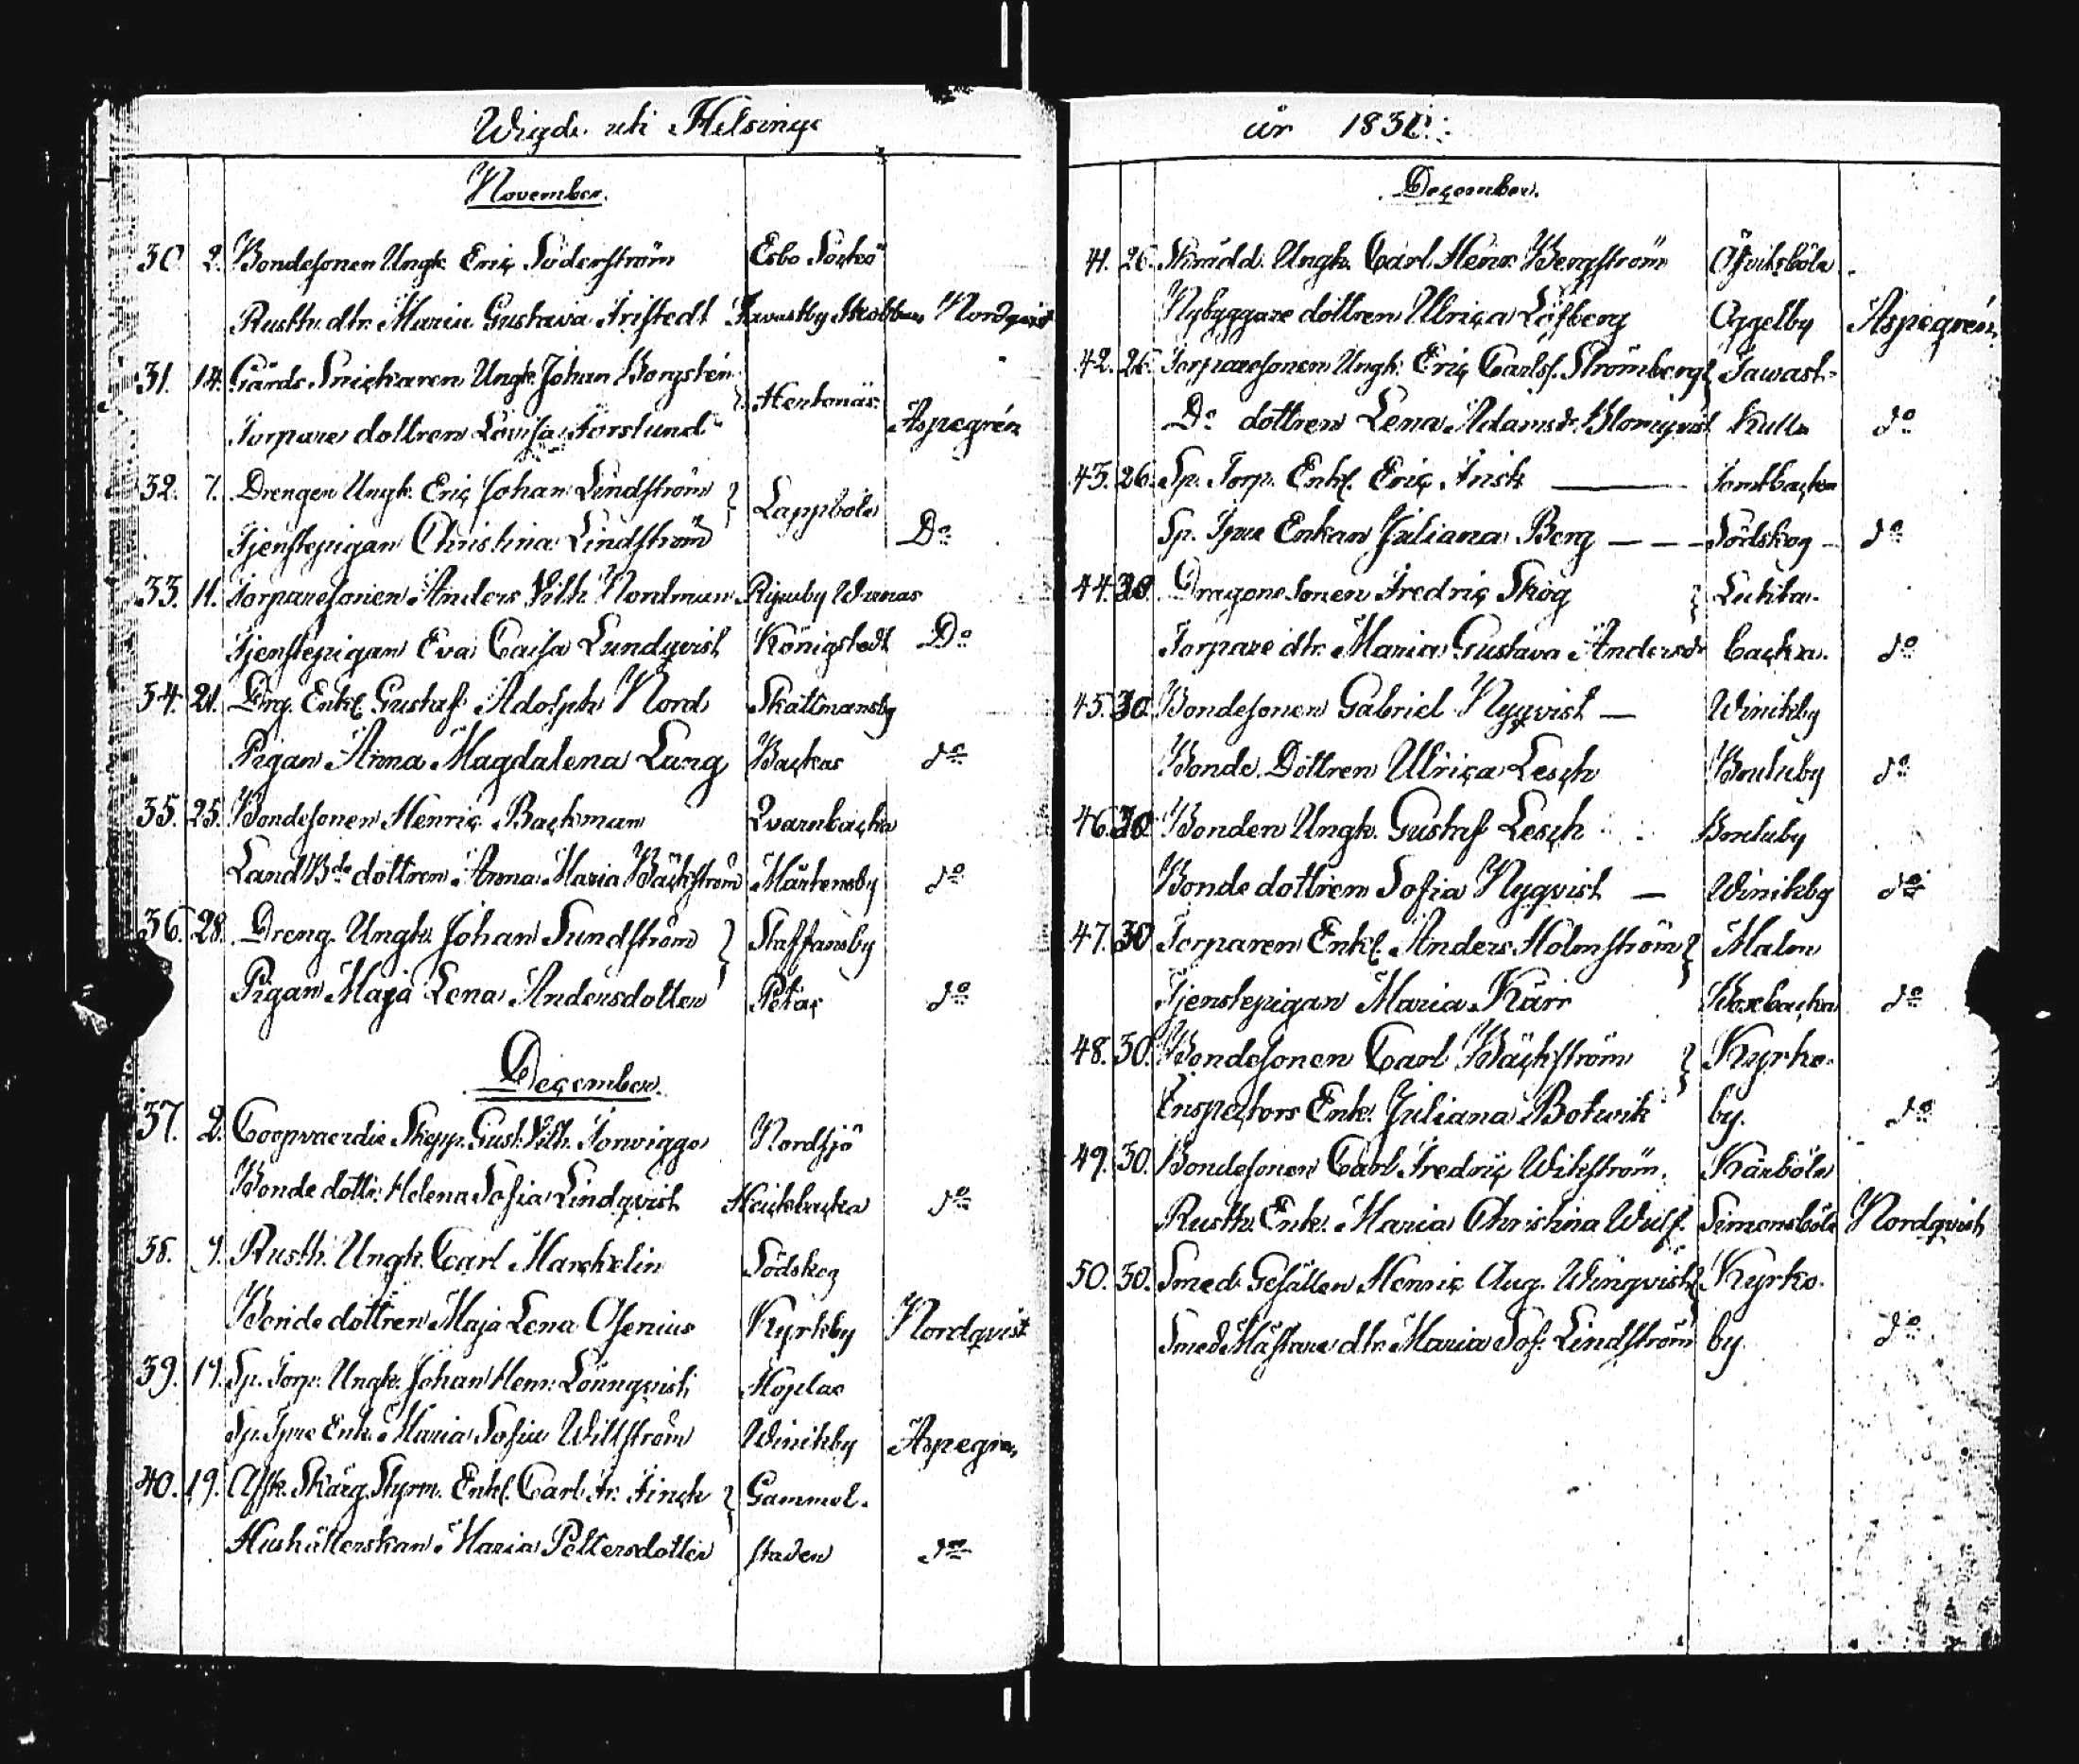 Wigde uti Helsinge
November.
30 2. Bondesonen Ungk. Eric Söderström Esbo Sockn
Rusth. dtr. Maria Gustava Fristedt Tavastby Nordqvist
31. 14. Gårds Snickaren Ungk. Johan Borgstén Hertonäs
Torpare dottren Lovisa Forslund Aspegrén
32. 7. Drengen Ungk. Eric Johan Lindström } Lappböle
Tjenstepigan Christina Lindström Do
33. 11. Torparesonen Anders Vilh. Nordman
Tjenstepigan Eva Caisa Lundqvist Königstedt Do
34. 21. Drg. Enkl. Gustaf Adolph Nord Skattmansby
Pigan Anna Magdalena Lång Backas do
35. 25. Bondesonen Henric Backman Qvarnbacka
Land Bde dottren Anna Maria Bäckström Mårtensby do
36. 28. Dreng. Ungk. Johan Sundström } Staffansby
Pigan Maja Lena Andersdotter Petas do
December.
37. 2. Coopvaerdie Skepp. Gust. Vilh. Nordsjö
Bonde dottr. Helena Sofia Lindqvist Heickbacka do
38. 9. Rusth. Ungk. Carl Marckelin Södskog
Bonde dottren Maja Lena Osenius Kyrkby Nordqvist
39. 19. Sp. Torp. Ungk. Johan Henr. Lönnqvist Hoplax
Sp. Tpre Enk. Maria Sofia Willström Winikby Aspegrén
40. 19. Afsk. Skärg. Styrm. Enkl. Carl Fr. Finck } Gammel-
Hushållerskan Maria Pettersdotter staden do
år 183
December.
41. 26. Ungk. Carl Henr. Bergström Öfvitsböle
Nybyggare dottren Ulrica Löfberg Oggelby Aspegrén
42. 26. Torparesonen Ungk. Eric Carlss. Strömberg } Tawast-
Do dottren Lena Adamsdr. Blomqvist kulla do
43. 26. Sp. Torp. Enkl. Eric Frisk — Tomtbacka
Sp. Tpre Enkan Juliana Berg — — Södskog do
44. 28. Dragone Sonen Fredric Skog }
Torpare dtr. Maria Gustava Andersdr backa. do
45. 30. Bondesonen Gabriel Nyqvist — Winikby
Bonde Dottren Ulrica Lesch Bouluby do
46. 30. Bonden Ungk. Gustaf Lesch Bouluby
Bonde dottren Sofia Nyqvist — Winikby do
47. 30 Torparen Enkl. Anders Holmström } Malm
Tjenstepigan Maria Kärr Boxbacka do
48. 30. Bondesonen Carl Bäckström } Kyrko-
Inspectors Enk. Juliana Botwik by. do
49. 30. Bondesonen Carl Fredric Wikström. Kårböle
Rusth. Enk. Maria Christina Wulf. Simonsböle Nordqvist
50. 30. Smed Gesällen Henric Aug. Winqvist } Kyrko-
Smed Mästare dtr. Maria Sof. Lindström by. do